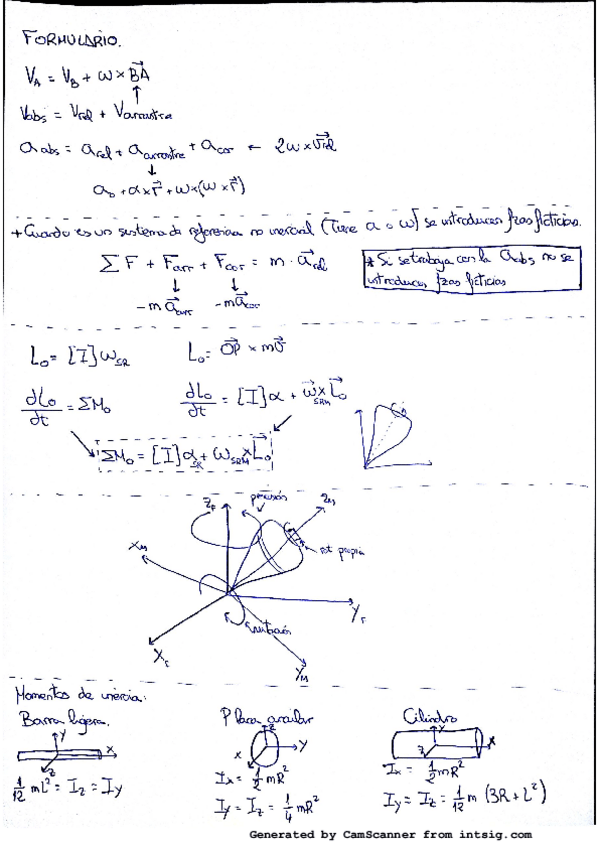 FORMULARIO.
V_A = V_B + ω × B⃗A
Vabs = Vrel + Varrastre
a abs = a rel + a arrastre + a cor ← 2ω × v⃗rel
a_o + α × r⃗ + ω × (ω × r⃗)
+ Cuando es un sistema de referencia no inercial (Tiene a o ω) se introducen fzas ficticias.
ΣF + Farr + Fcor = m · a⃗rel
* Si se trabaja con la aabs no se
introducen fzas ficticias
-m a⃗arr -m a⃗cor
L_o = [I] ω_SR L_o = O⃗P × m v⃗
dL_o/dt = ΣM_o dL_o/dt = [I] α + ω⃗_SRM × L⃗_o
ΣM_o = [I] α_SR + ω_SRM × L⃗_o
Z_F precesión Z_M
X_M rot propia
Y_F
nutación
X_F Y_M
Momentos de inercia:
Barra ligera. Placa circular Cilindro
y x z
z x y
y z x
1/12 mL² = I_z = I_y
I_x = 1/2 mR²
I_y = I_z = 1/4 mR²
I_x = 1/2 mR²
I_y = I_z = 1/12 m (3R + L²)
Generated by CamScanner from intsig.com